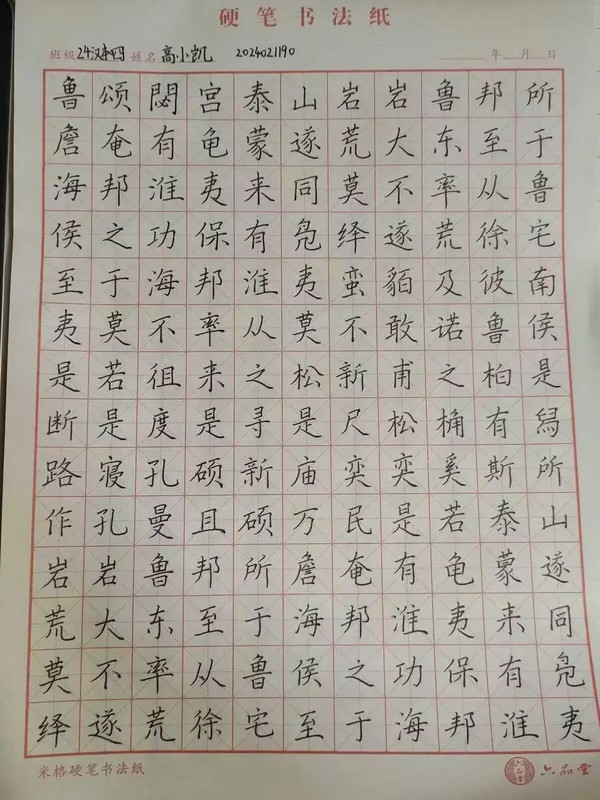 硬笔书法纸
班级 24汉本四 姓名 高小凯 2024021190 年 月 日
鲁颂閟宫泰山岩岩鲁邦所
詹奄有龟蒙遂荒大东至于
海邦淮夷来同莫不率从鲁
侯之功保有凫绎遂荒徐宅
至于海邦淮夷蛮貊及彼南
夷莫不率从莫不敢诺鲁侯
是若徂来之松新甫之柏是
断是度是寻是尺松桷有舄
路寝孔硕新庙奕奕奚斯所
作孔曼且硕万民是若泰山
岩岩鲁邦所詹奄有龟蒙遂
荒大东至于海邦淮夷来同
莫不率从鲁侯之功保有凫
绎遂荒徐宅至于海邦淮夷
米格硬笔书法纸 六品堂